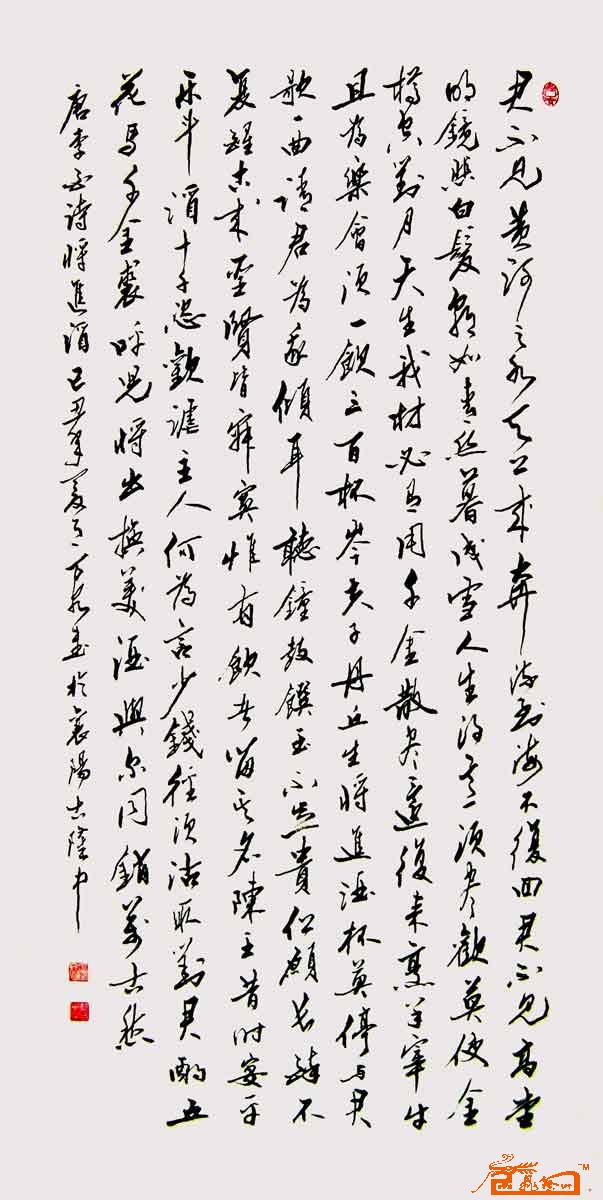 君不见黄河之水天上来奔流到海不復回君不见高堂
明鏡悲白髮朝如青丝暮成雪人生得意須尽歡莫使金
樽空對月天生我材必有用千金散尽還復来烹羊宰牛
且為樂會須一飲三百杯岑夫子丹丘生將進酒杯莫停与君
歌一曲請君為我傾耳聽鐘鼓饌玉不足貴但願长醉不
复醒古来聖賢皆寂寞惟有飲者留其名陳王昔时宴平
乐斗酒十千恣歡謔主人何為言少錢径須沽取對君酌五
花馬千金裘呼兒将出换美酒與尔同銷萬古愁
唐李白詩將進酒己丑年夏月 书於襄陽古隆中